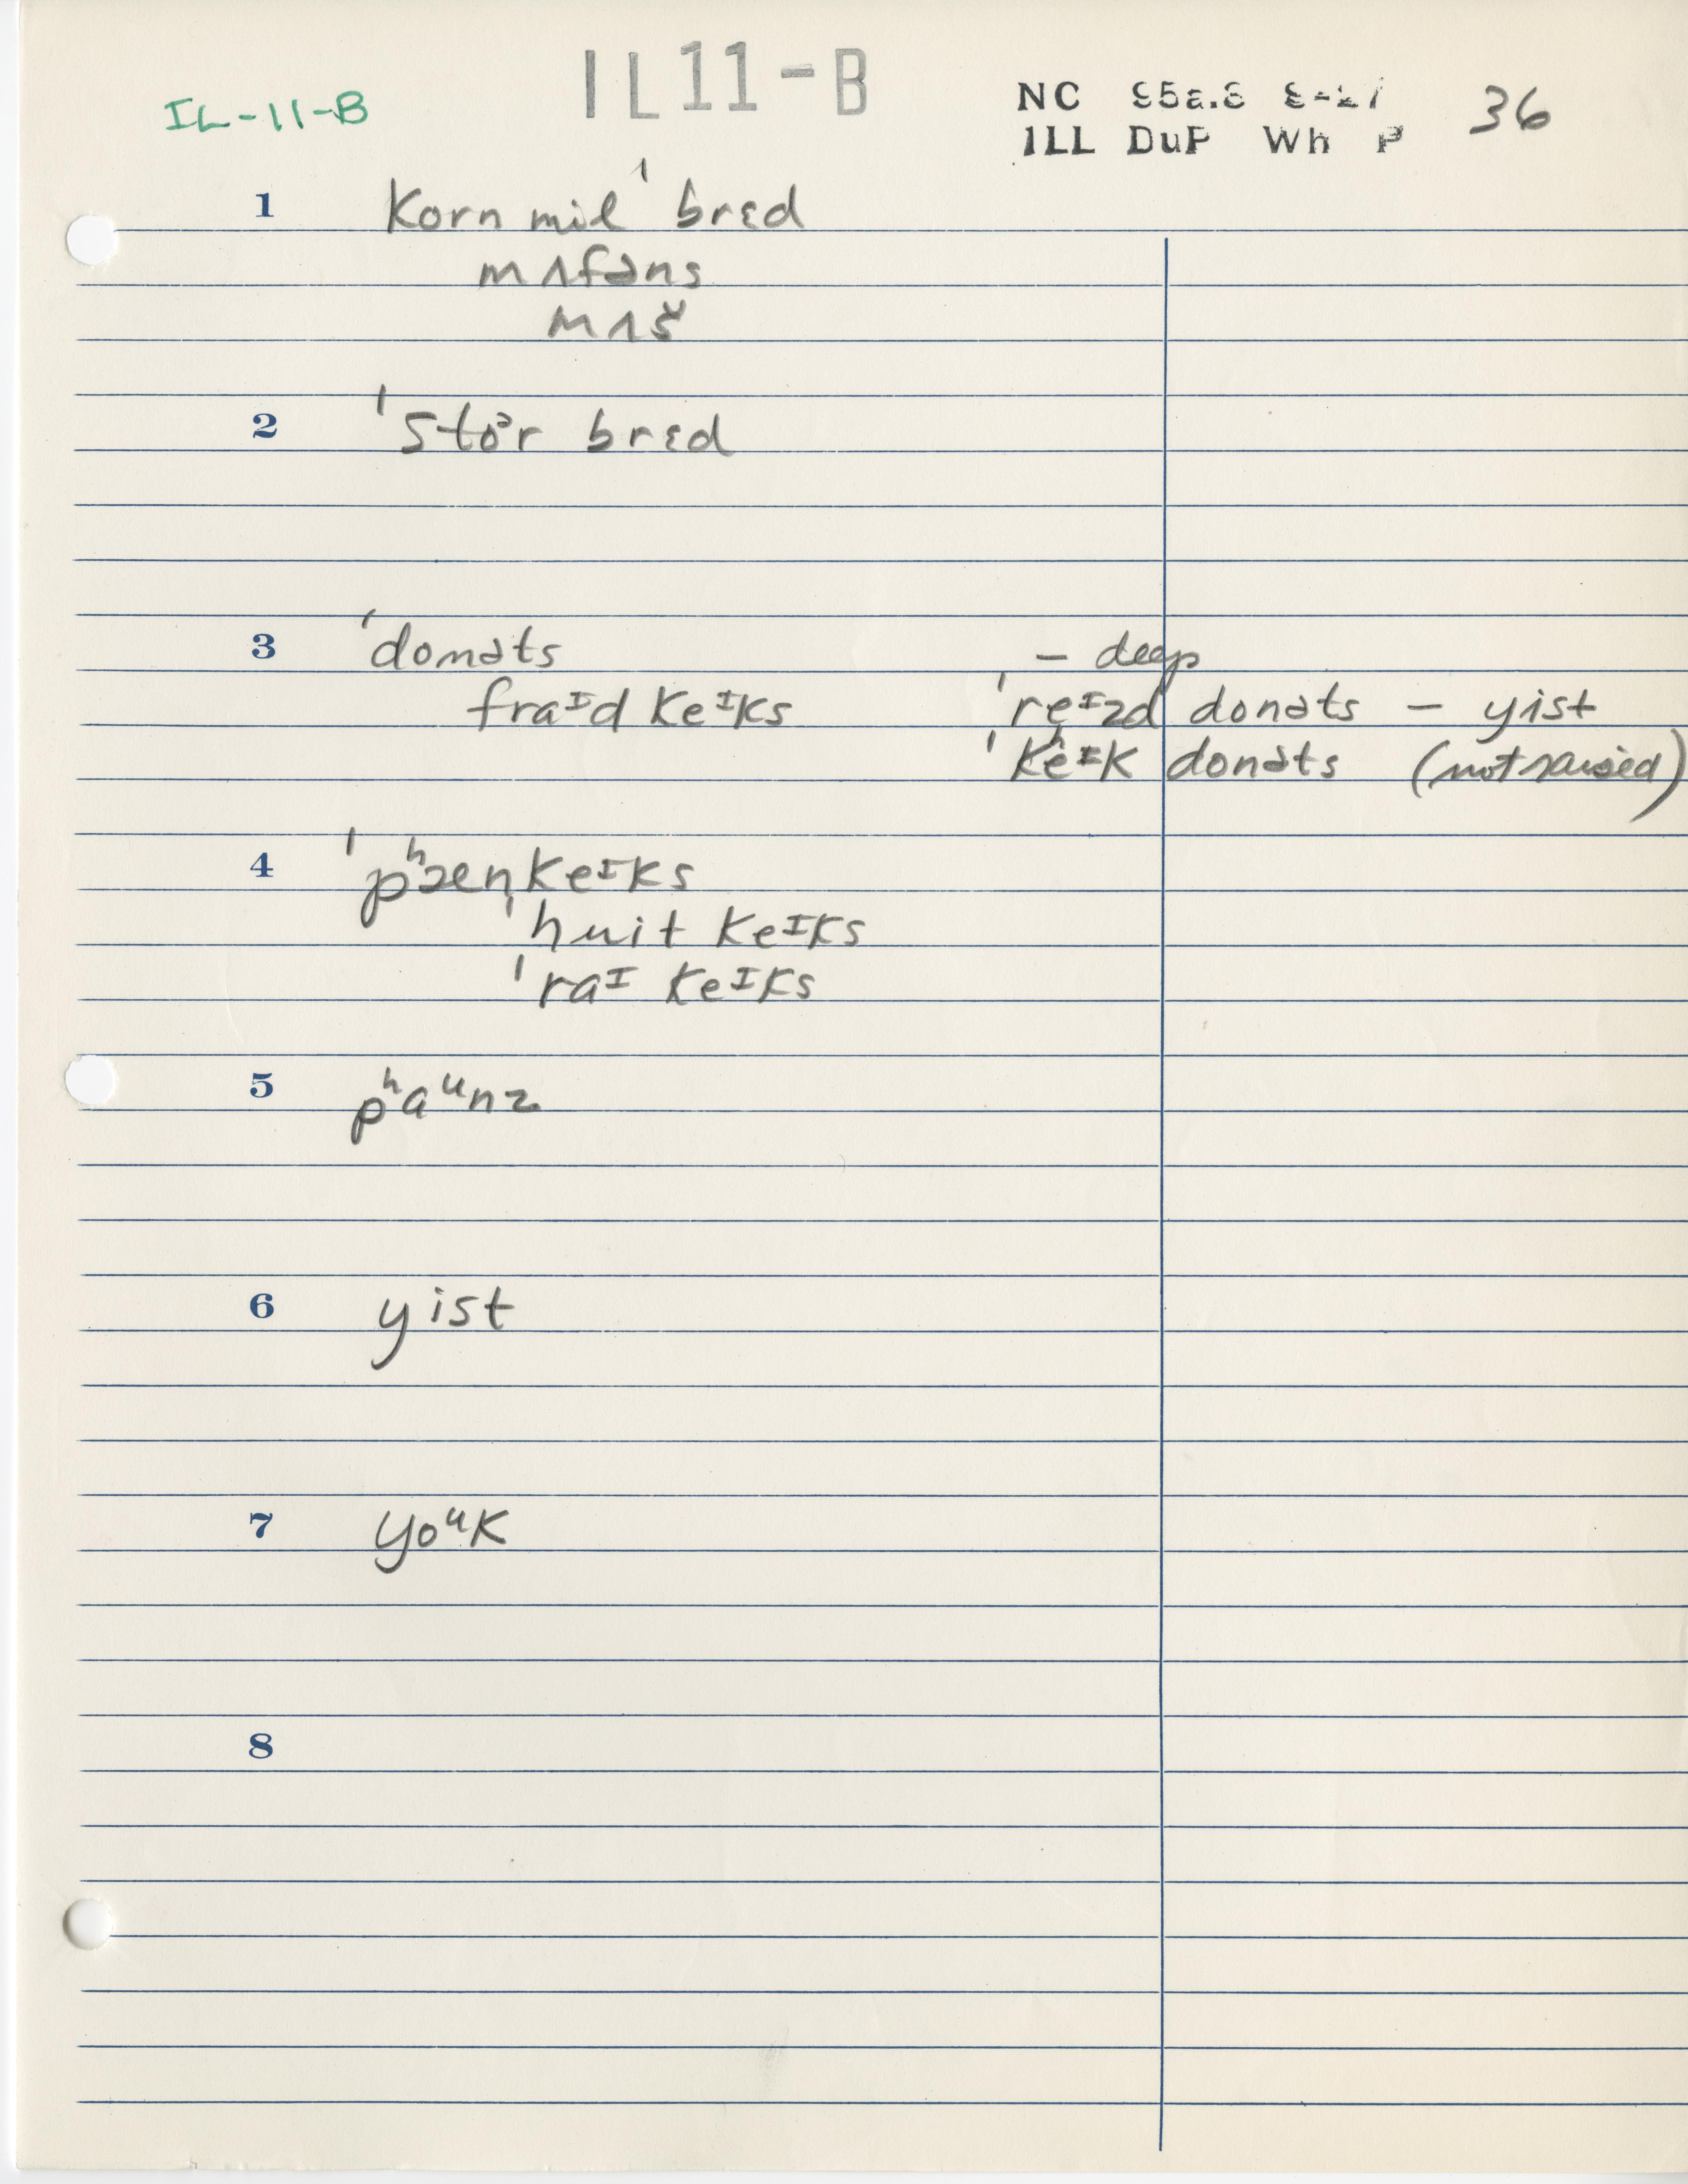 IL11-B
IL-11-B
NC
36
ILL DuP Wh P
1 korn mil ˈbrɛd
mʌfəns
mʌš
2 ˈstoᵊr brɛd
3 ˈdonəts – deep
fraᴵd keᴵks ˈreᴵzd donəts – yist
ˈkʰeᴵk donəts (not raised)
4 ˈpʰænkeᴵks
ˈhuit keᴵks
ˈraᴵ keᴵks
5 pʰaᵘnz
6 yist
7 yoᵘk
8